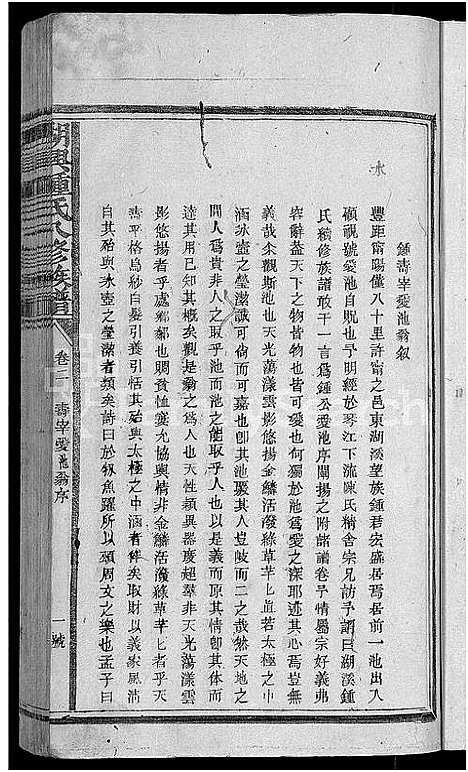 鍾壽宰愛池翁叙
豐距甯陽僅八十里許甯之邑東湖溪望族鍾君宏盛居焉居前一池出入
顧視號愛池自貺也予明經於琴江下流陳氏精舍宗兄訪予謂曰湖溪鍾
氏續修族譜敢干一言爲鍾公愛池序闡揚之附諸譜卷予情屬宗好義弗
容辭盖天下之物皆物也皆可愛也何獨於池爲愛之深耶述其心焉豈無
義哉尒觀斯池也天光蕩漾雲影悠揚金鱗活潑綠草芊芊上直若太極之中
涵冰壺之瑩潔誠可尚也可嘉也卽其池驟其人豈岐而二之哉然天地之
間人爲貴非人之取乎池而池之能取乎人也以是義而原其情卽其体而
達其用已知其槪矣觀是翁之爲人也天性穎異器度超羣非天光蕩漾雲
影悠揚者乎處鄕鄰也賙貧恤寡允協輿情非金鱗活潑綠草芊芊者乎
壽平格烏紗白髮引養引恬其殆與太極之中涵者侔矣取財以義家風淸
白其殆與水壺之瑩潔者類矣詩曰於牣魚躍所以頌周文之樂也孟子曰
湖興鍾氏八修族譜
卷二
壽宰愛池翁序
一號
水